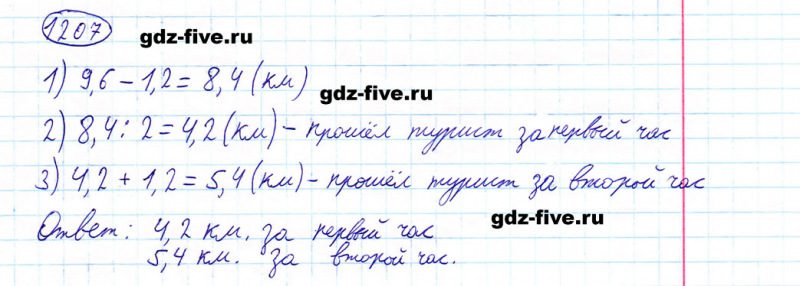 1207
gdz-five.ru
1) 9,6 – 1,2 = 8,4 (км)
gdz-five.ru
2) 8,4 : 2 = 4,2 (км) – прошёл турист за первый час
3) 4,2 + 1,2 = 5,4 (км) – прошёл турист за второй час
gdz-five.ru
Ответ: 4,2 км. за первый час
5,4 км. за второй час.